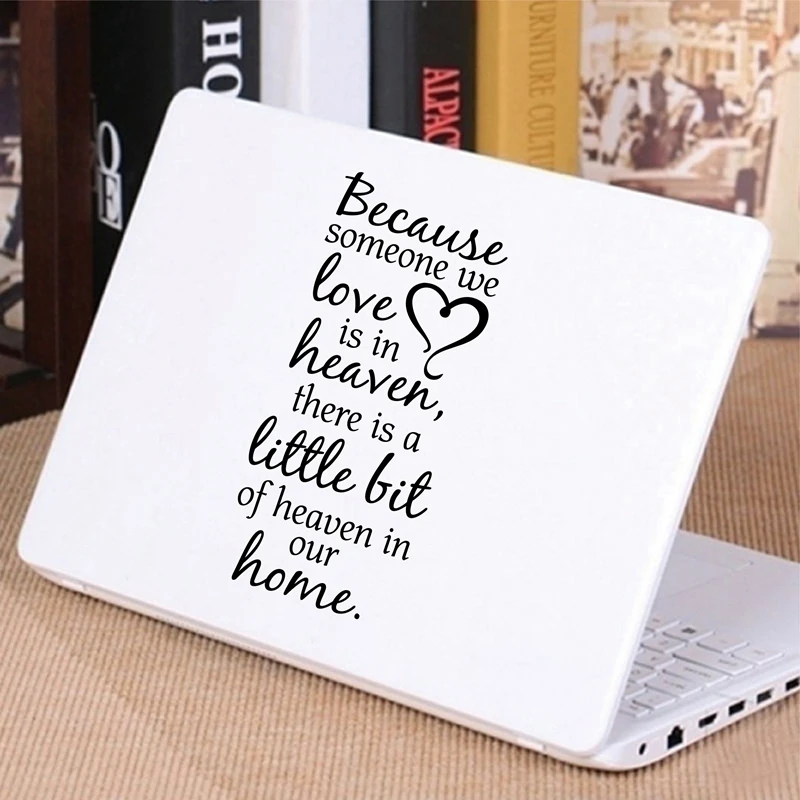 HO
OE
ALPAC
URNITURE CULTU
Because
someone we
love
is in
heaven,
there is a
little bit
of heaven in
our
home.